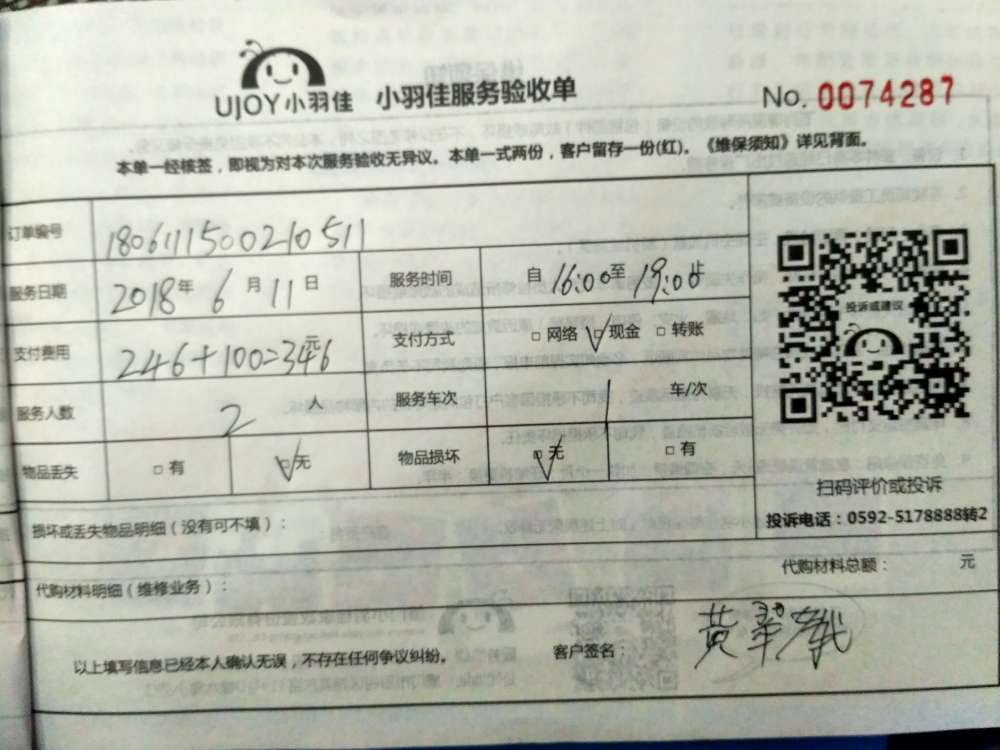 UJOY小羽佳 小羽佳服务验收单 No. 0074287
本单一经核签，即视为对本次服务验收无异议。本单一式两份，客户留存一份(红)。《维保须知》详见背面。
订单编号 180611150021051 1
服务日期 2018年6月11日 服务时间 自16:00至19:00止
支付费用 246+100=346元 支付方式 □网络 ☑现金 □转账
服务人数 2人 服务车次 1车/次
物品丢失 □有 ☑无 物品损坏 ☑无 □有
投诉或建议
扫码评价或投诉
投诉电话：0592-5178888转2
损坏或丢失物品明细（没有可不填）：
代购材料明细（维修业务）： 代购材料总额： 元
以上填写信息已经本人确认无误，不存在任何争议纠纷。 客户签名： 黄